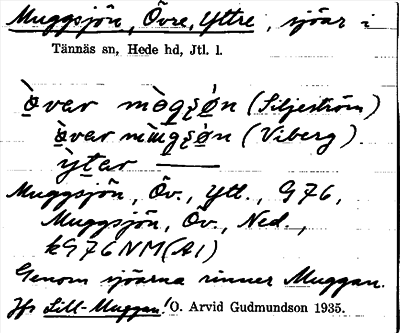 Muggsjön, Övre, Yttre, sjöar i
Tännäs sn, Hede hd, Jtl. l.
ò̱var mò̱gʂø̱n (Siljeström)
ò̱var mùgʂø̱n (Viberg)
ỳtar ———
Muggsjön, Öv., Ytt., G76,
Muggsjön, Öv., Ned.,
kG76NM(A1)
Genom sjöarna rinner Muggan.
Jfr Lill-Muggan! O. Arvid Gudmundson 1935.